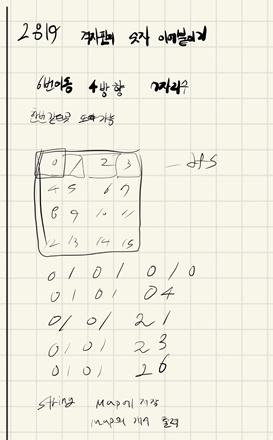 2819 격자판의 숫자 이어붙이기
6번이동 4방향 7자리수
한번 간곳 또 가능
0 1 2 3 - dfs
4 5 6 7
8 9 10 11
12 13 14 15
0 1 0 1 0 1 0
0 1 0 1 0 4
0 1 0 1 2 1
0 1 0 1 2 3
0 1 0 1 2 6
string Map에 저장
map의 개수 출력